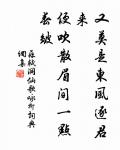 又莫是東風逐君
來
便吹散眉間一點
春皺
蘇軾洞仙歌詠柳